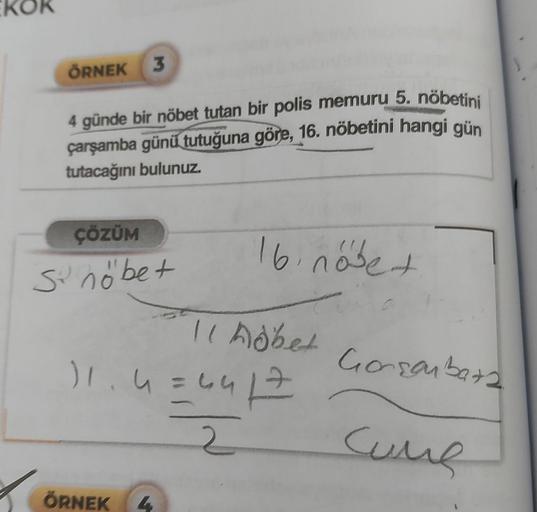 KÖK
ÖRNEK 3
4 günde bir nöbet tutan bir polis memuru 5. nöbetini
çarşamba günü tutuğuna göre, 16. nöbetini hangi gün
tutacağını bulunuz.
ÇÖZÜM
5. nöbet 16. nöbet
11 nöbet
11.4 = 44 7 Çarşamba+2
2 Cuma
ÖRNEK 4